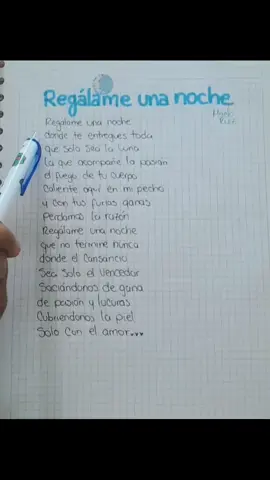 Regálame una noche
Regalame una noche
donde te entregues toda
que solo sea la luna
la que acompañe la pasión
el fuego de tu cuerpo
Caliente aquí en mi pecho
y con tus furias ganas
Perdamos la razón
Regalame una noche
que no termine nunca
donde el Cansancio
Sea Solo el Vencedor
Saciándonos de gana
de pasión y lucuras
Cubriendonos la piel
Solo con el amor...